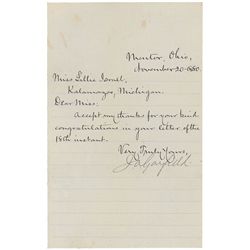 Mentor, Ohio,
November 20, 1880.
Miss Lillie
Kalamazoo, Michigan.
Dear Miss:
Accept my thanks for your kind
congratulations in your letter of the
18th instant.
Very Truly Yours,
J A Garfield